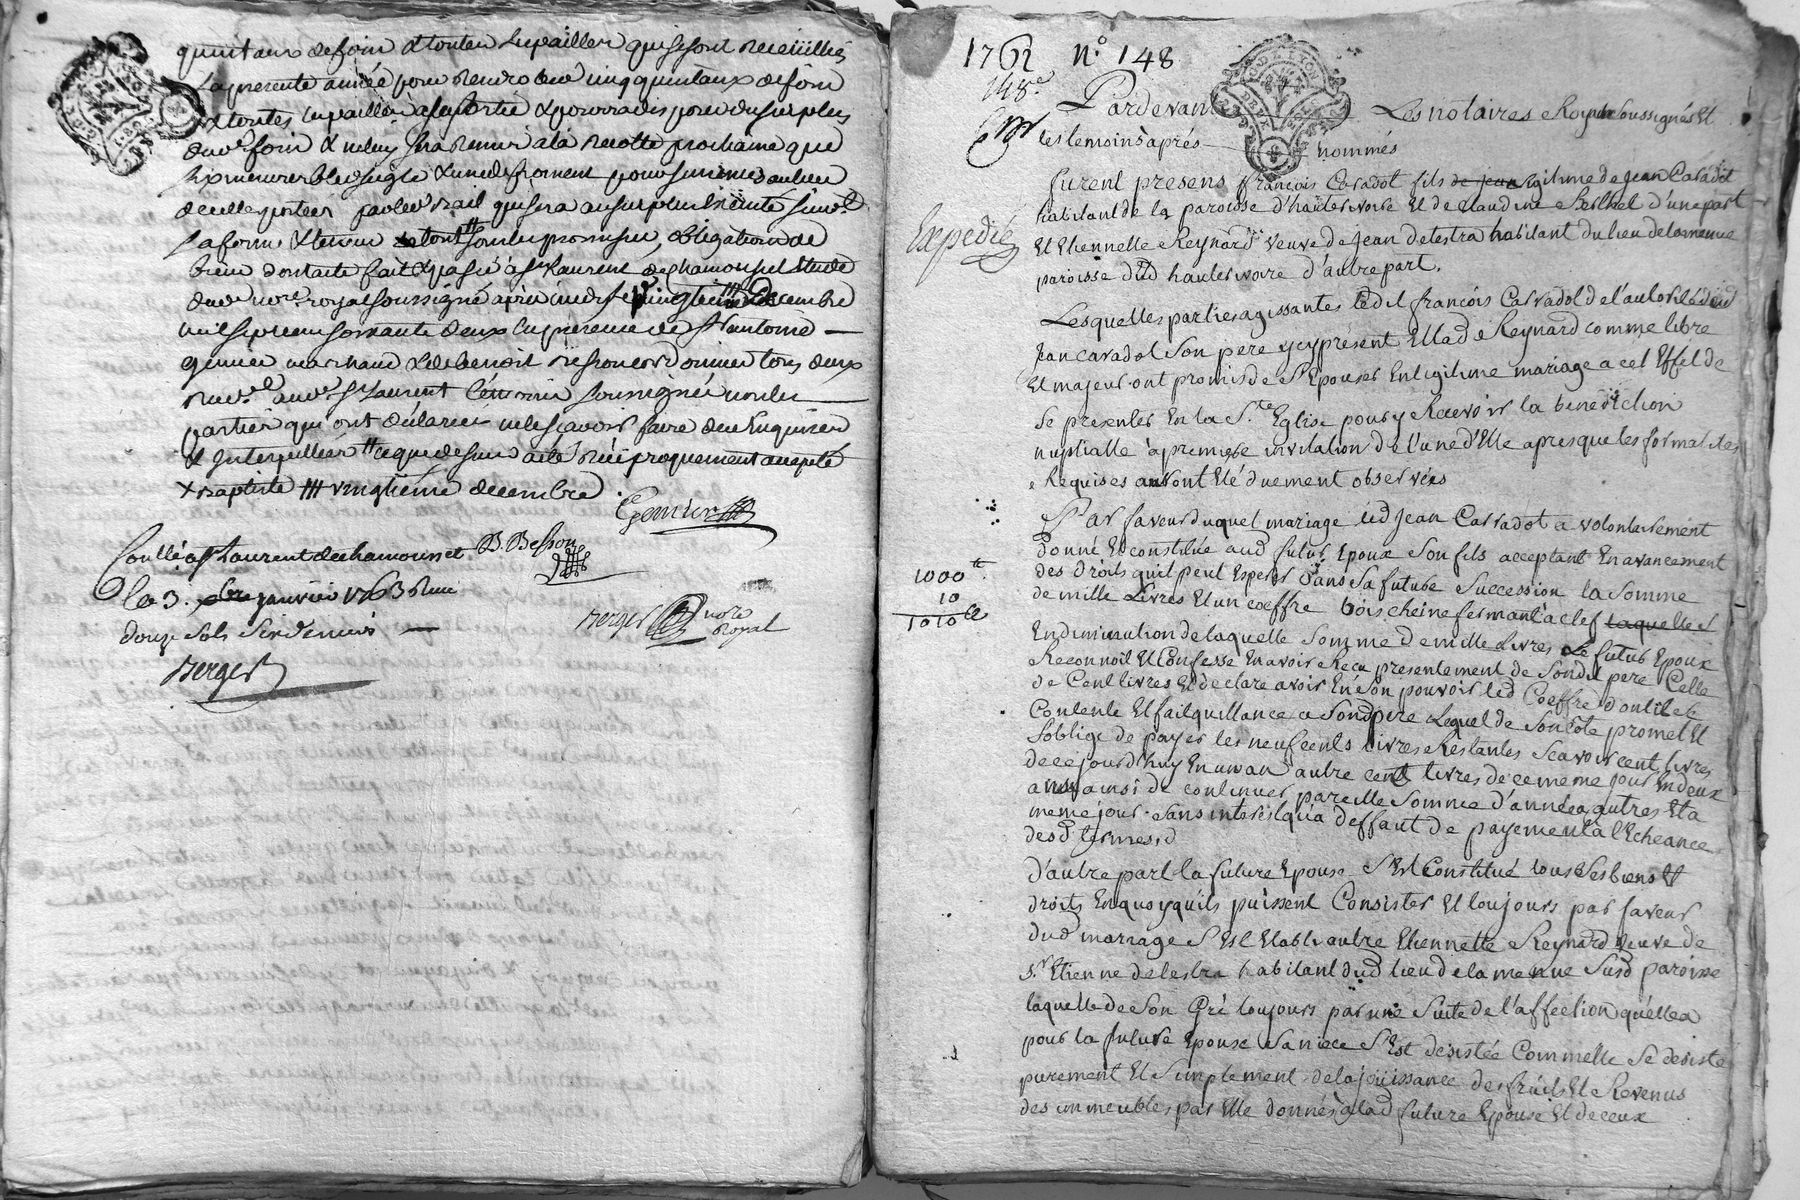 quintaux de foin & toutes les pailles qui se sont recueillies
la presente année pour rendre cinq quintaux de foin
& toutes les pailles a sa sortie & pourra disposer du surplus
dud foin & celuy sera tenu a la recolte prochaine que
six mesures bled seigle & une de froment pour semences au lieu
de celle portées par led bail qui sera au surplus executé suivt
sa forme & teneur tout sous les promesses, obligations de
biens dont acte fait & passé a St Laurent de chamousset etude
dud nore royal soussigné après midi le vingtieme Decembre
mil sept cent soixante deux en presence de Sr antoine
genier marchand & de benoit besson cordonnier tous deux
dud St Laurent temoins soussignés non les
parties qui ont déclaré ne le scavoir faire de ce Enquises
& Interpellées
& baptiste vingtieme decembre.
Genier
B. Besson
Conllé a St Laurent de chamousset
le 3. janvier 1763 Reçu
douze sols six deniers
Berger
Berger nore
Royal
1762 n° 148
148e
Pardevant Les notaires Royaux soussignés Et
les temoins après nommés
Expedié
furent presens françois Carradot fils de jean legitime de Jean Caradot
habitant de la paroisse d'hauterivoire Et de claudine Berthet d'une part
Et Etiennette Reynard veuve de jean delestra habitant du lieu de la menue
paroisse dud hauterivoire d'autre part.
Lesquelles parties agissantes ledit françois Carradot de l'autorité dud
Jean caradot Son pere ycy présent Et lad Reynard comme libre
Et majeur ont promis de S'Epouser En legitime mariage a cet Effet de
Se presenter En la Ste Eglise pour y Recevoir la benediction
nuptialle à premiere invitation de l'une d'Elle apres que les formalites
Requises auront Eté duement observées
Par faveur duquel mariage led Jean Carradot a volontairement
donné Et constitué aud futur Epoux Son fils acceptant En avancement
des droits quil peut Esperer dans Sa future Succession la Somme
1000tt
de mille Livres Et un coeffre bois cheine fermant à clef laquelle S
10
1010tt
En diminution de laquelle Somme de mille Livres le futur Epoux
Reconnoit Et Confesse En avoir Recu presentement de Sondit pere Celle
de Cent livres Et declare avoir En Son pouvoir led Coeffre dont il Est
Contente Et fait quittance a Sond pere Lequel de Son Coté promet Et
S'oblige de payer les neuf cents Livres Restantes Scavoir cent livres
de ce jourd'huy En un an autre cent livres de ce meme jour En deux
ans ainsi de continuer pareille Somme d'année a autres Et a
meme jour. Sans interest qu'à deffaut de payement a l'Echeance
desd termes
D'autre part la future Epouse S'Est Constitué tous Ses biens Et
droits En quoy qu'ils puissent Consister Et toujours par faveur
dud mariage S'Est Etablie autre Etiennette Reynard veuve de
Sr Etienne delestra habitant dud lieu de la menue Susd paroisse
laquelle de Son Gré toujours par une Suite de l'affection qu'elle a
pour la future Epouse Sa niece S'Est desistée Comme Elle Se desiste
purement Et Simplement de la joüissance des fruits Et Revenus
des immeubles par Elle donnés a lad future Epouse Et de ceux